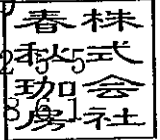 株式会社
春秋珈房